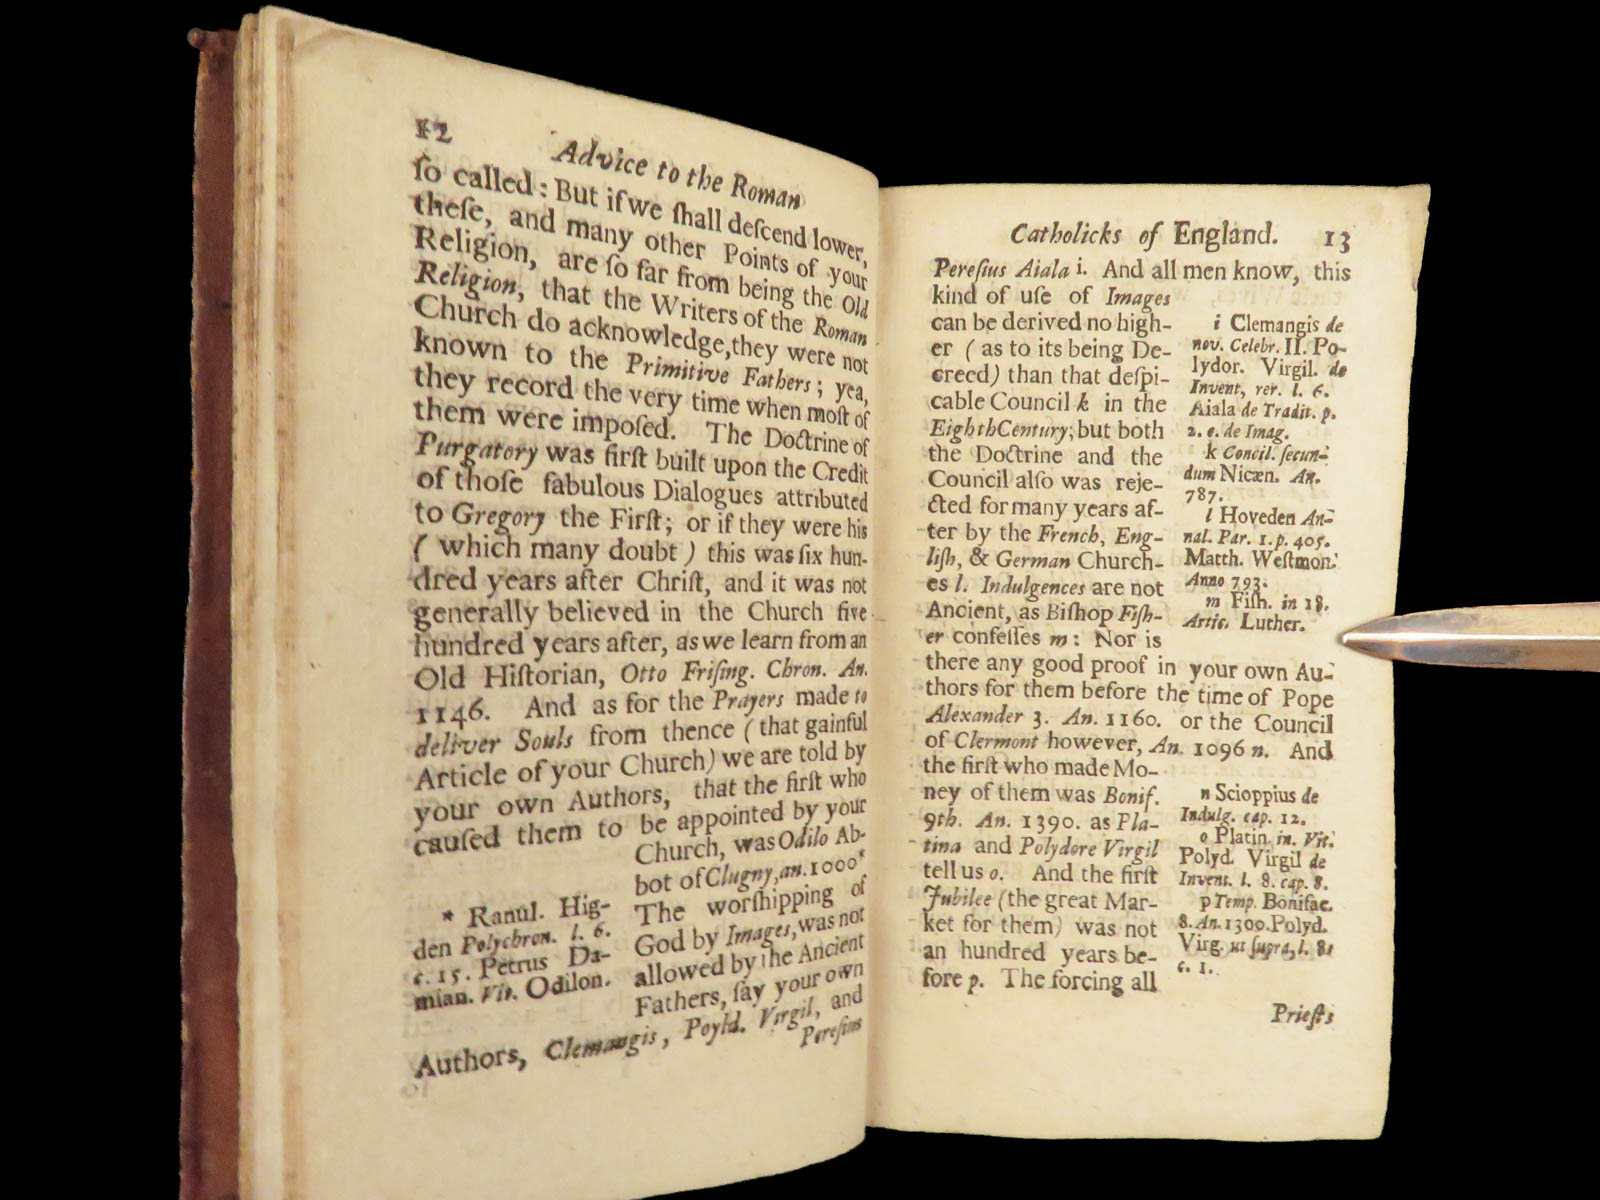 12
Advice to the Roman
ſo called: But if we ſhall deſcend lower,
theſe, and many other Points of your
Religion, are ſo far from being the Old
Religion, that the Writers of the Roman
Church do acknowledge, they were not
known to the Primitive Fathers; yea,
they record the very time when moſt of
them were impoſed. The Doctrine of
Purgatory was firſt built upon the Credit
of thoſe fabulous Dialogues attributed
to Gregory the Firſt; or if they were his
( which many doubt ) this was ſix hun-
dred years after Chriſt, and it was not
generally believed in the Church five
hundred years after, as we learn from an
Old Hiſtorian, Otto Friſing. Chron. An.
1146. And as for the Prayers made to
deliver Souls from thence ( that gainful
Article of your Church) we are told by
your own Authors, that the firſt who
cauſed them to be appointed by your
Church, was Odilo Ab-
bot of Clugny, an. 1000*
The worſhipping of
God by Images, was not
allowed by the Ancient
Fathers, ſay your own
Authors, Clemangis, Poyld. Virgil, and
* Ranul. Hig-
den Polychron. l. 6.
c. 15. Petrus Da-
mian. Vit. Odilon.
Pereſius
Catholicks of England. 13
Pereſius Aiala i. And all men know, this
kind of uſe of Images
can be derived no high-
er ( as to its being De-
creed) than that deſpi-
cable Council k in the
Eighth Century; but both
the Doctrine and the
Council alſo was reje-
cted for many years af-
ter by the French, Eng-
liſh, & German Church-
es l. Indulgences are not
Ancient, as Biſhop Fiſh-
er confeſſes m: Nor is
there any good proof in your own Au-
thors for them before the time of Pope
Alexander 3. An. 1160. or the Council
of Clermont however, An. 1096 n. And
the firſt who made Mo-
ney of them was Bonif.
9th. An. 1390. as Pla-
tina and Polydore Virgil
tell us o. And the firſt
Jubilee (the great Mar-
ket for them) was not
an hundred years be-
fore p. The forcing all
i Clemangis de
nov. Celebr. II. Po-
lydor. Virgil. de
Invent, rer. l. 6.
Aiala de Tradit. p.
2. e. de Imag.
k Concil. ſecun-
dum Nicæn. An.
787.
l Hoveden An-
nal. Par. 1. p. 405.
Matth. Weſtmon.
Anno 793.
m Fiſh. in 18.
Artic. Luther.
n Scioppius de
Indulg. cap. 12.
o Platin. in. Vit.
Polyd. Virgil de
Invent. l. 8. cap. 8.
p Temp. Bonifac.
8. An. 1300. Polyd.
Virg. ut ſupra, l. 8.
c. 1.
Prieſts